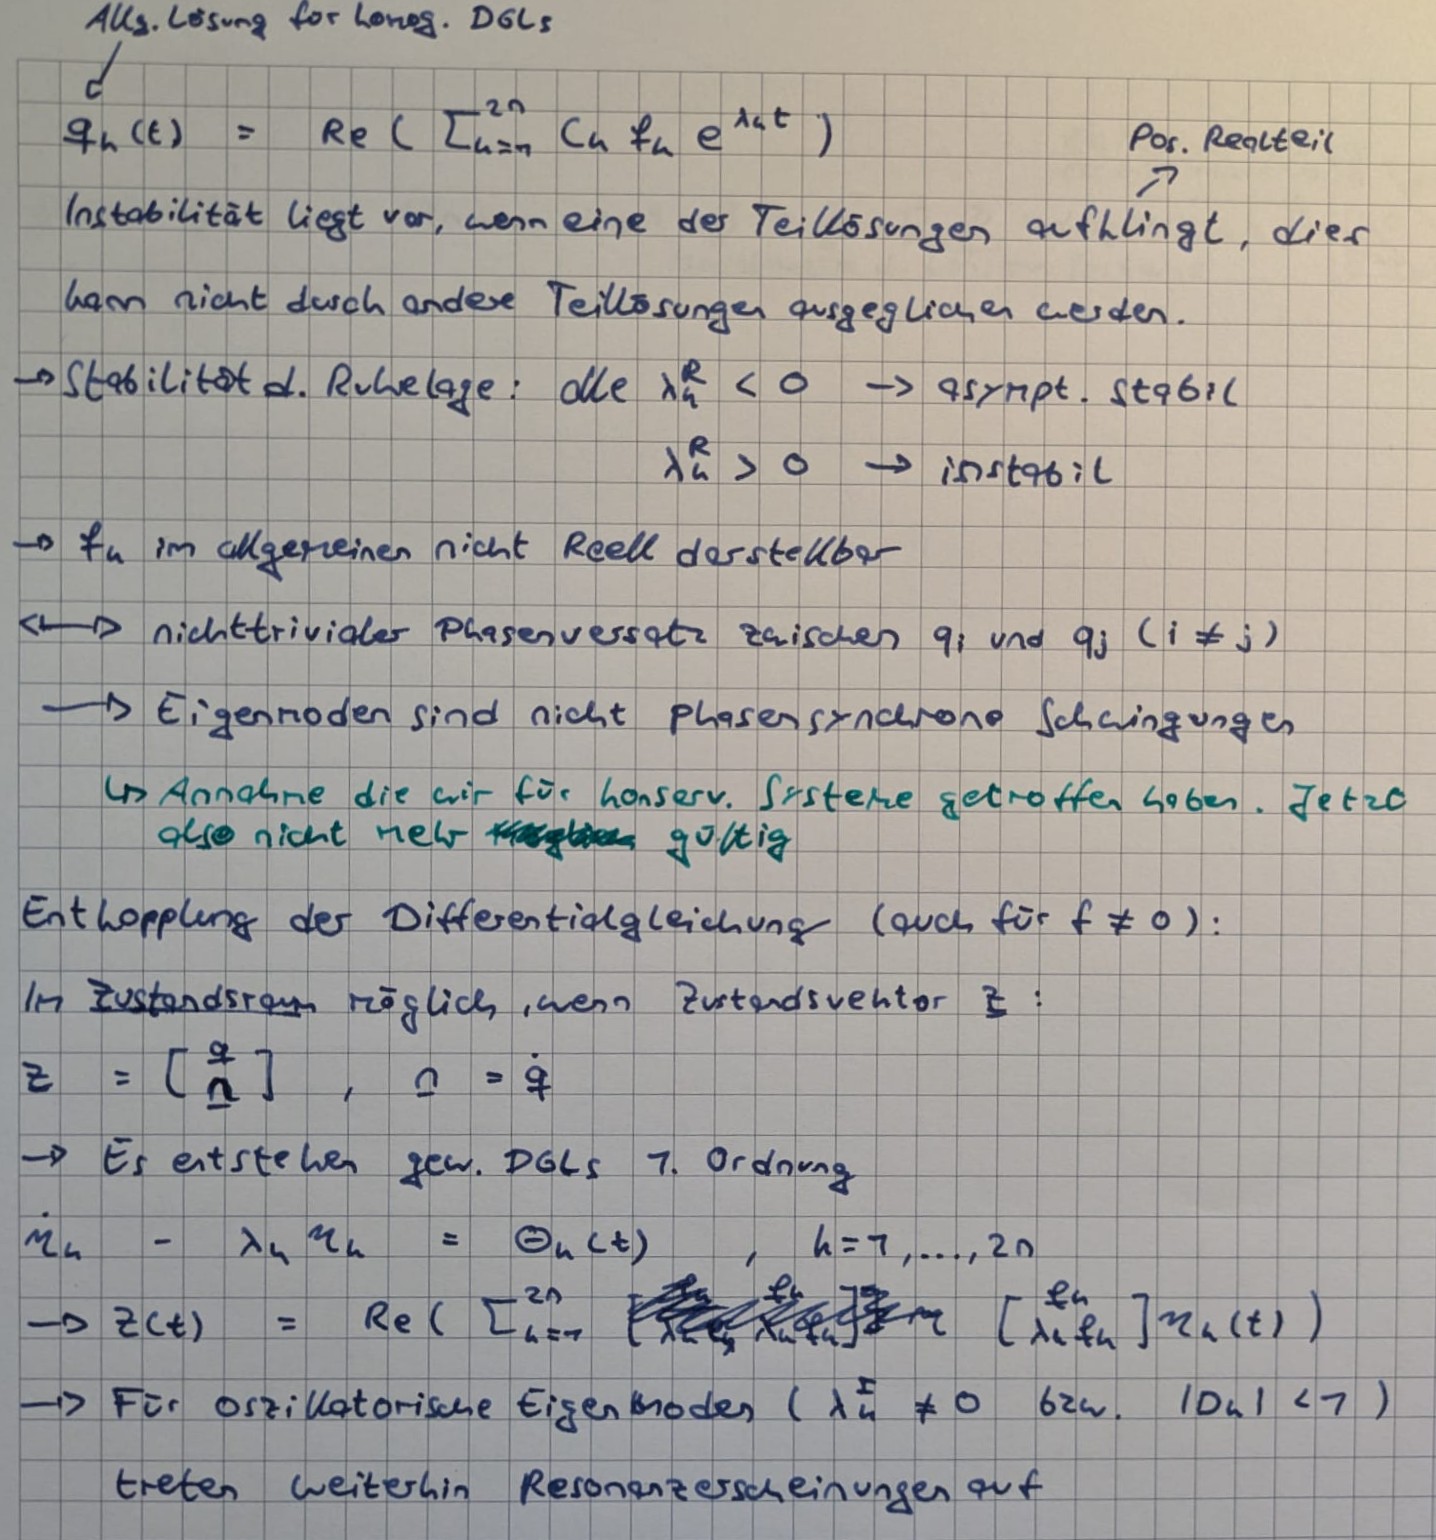 Allg. Lösung for homog. DGLs
q_k(t) = Re ( Σ_{k=1}^{2n} C_k f_k e^{λ_k t} )
Pos. Realteil
Instabilität liegt vor, wenn eine der Teillösungen aufklingt, dies
kann nicht durch andere Teillösungen ausgeglichen werden.
→ Stabilität d. Ruhelage: alle λ_k^R < 0 → asympt. stabil
λ_k^R > 0 → instabil
→ f_k im allgemeinen nicht Reell darstellbar
<—> nichttrivialer Phasenversatz zwischen q_i und q_j (i ≠ j)
—> Eigenmoden sind nicht phasensynchrone Schwingungen
↳ Annahme die wir für konserv. Systeme getroffen haben. Jetzt
also nicht mehr gültig
Entkopplung der Differentialgleichung (auch für f ≠ 0):
Im Zustandsraum möglich, wenn Zustandsvektor z :
z = [ q / n ] , n = q̇
→ Es entstehen gew. DGLs 1. Ordnung
η̇_k - λ_k η_k = Θ_k(t) , k=1,...,2n
→ z(t) = Re ( Σ_{k=1}^{2n} [ f_k / λ_k f_k ] η_k(t) )
→ Für oszillatorische Eigenmoden ( λ_k^I ≠ 0 bzw. |D_k| < 1 )
treten weiterhin Resonanzerscheinungen auf